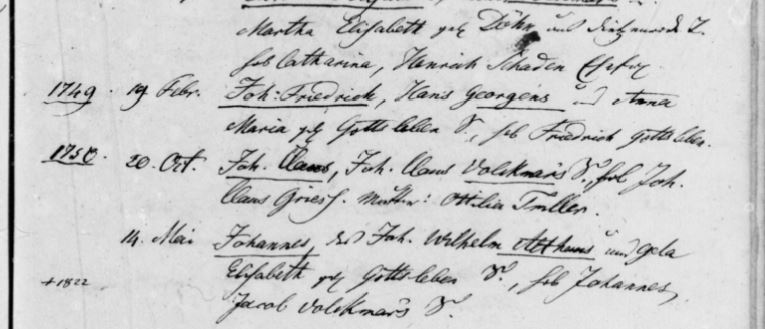 Martha Elisabeth geb Döhn und
geb Catharina, Henrich Schaden Ehefr.
1749. 19 Febr. Joh: Friedrich, Hans Georgens und Anna
Maria geb Gottsleben S., geb Friedrich Gottsleben.
1750. 20. Oct. Joh. Claus, Joh. Claus Volckmars S., geb Joh.
Claus Griess. Mutter: Ottilia Triller.
14. Mai Johannes, des Joh. Wilhelm Althans und Gela
+1822 Elisabeth geb Gottsleben S., geb Johannes,
Jacob Volckmars S.